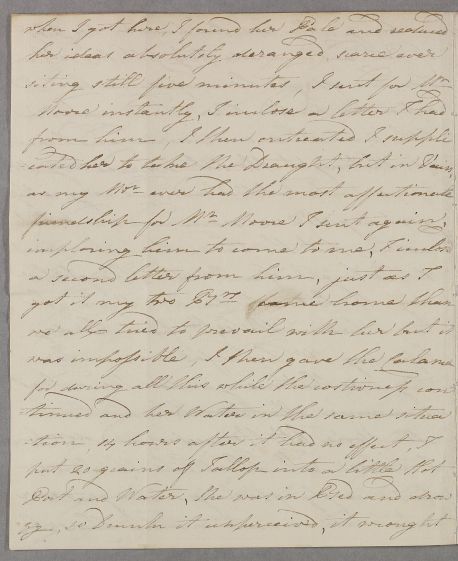 when I got here, I found her Pale and reduced
her ideas absolutely deranged scarce ever
siting still five minutes, I sent for Mr
Moore instantly, I inclose a letter I had
from him, I then entreated I suppli
=cated her to take the Draught, but in Vain,
as my Mr ever had the most affectionate
friendship for Mr Moore I sent again,
imploring him to come to me, I inclose
a second letter from him, just as I
got it my two Brs came home then
we all tried to prevail with her but it
was impossible, I then gave the
for during all this while the costiveness con
tinued and her Water in the same situa
=tion, 14 hours after it had no effect, I
put 20 grains of Jallop into a little Hot
Port and Water, She was in Bed and drow
zy, so Drunk it unperceived, it wrought